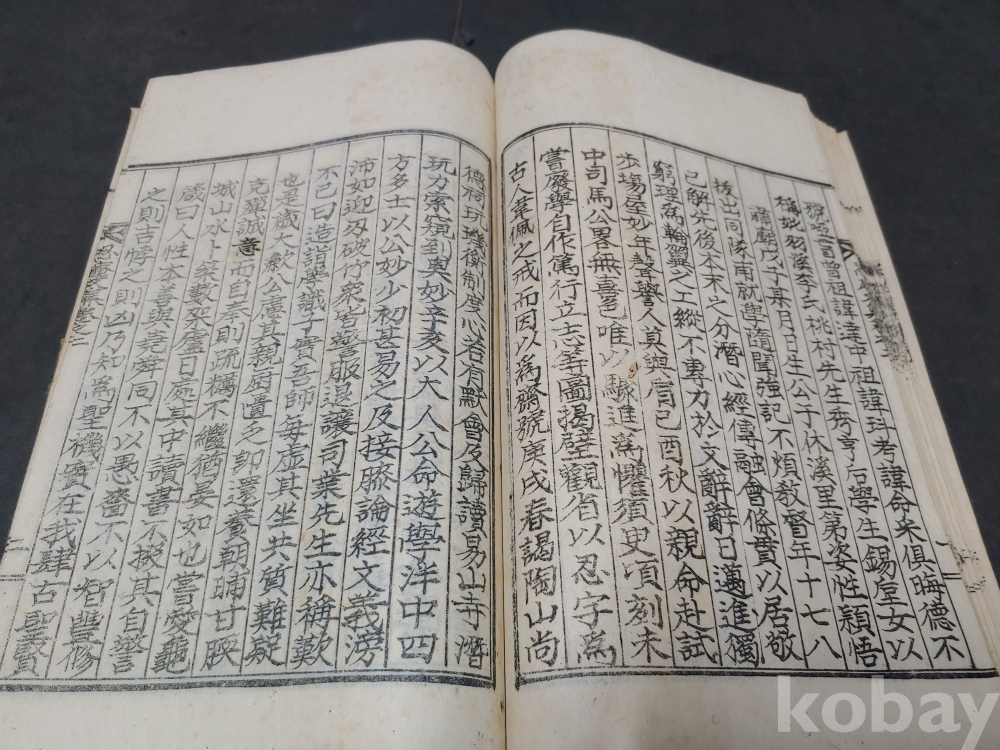 號啞言曾祖諱達中祖諱科考諱命采俱晦德不
稱妣羽溪李氏桃村先生秀亨后學生錫垕女以
肅廟戊子某月日生公于休溪里第姿性穎悟
拔出同隊甫就學道聞強記不煩教督年十七八
已解先後本末之分潛心經傳融會條貫以居敬
窮理爲輪翼之工縱不專力於文辭辭日邁進獨
步場屋妙年聲譽人莫與肩己酉秋以親命赴試
中司馬公畧無喜色唯以驟進爲懼須臾頃刻未
嘗廢學自作篤行立志等圖揭壁觀省以忍字爲
古人韋佩之戒而因以爲齋號庚戌春謁陶山尚
德祠玩璣衡制度心若有默會及歸讀易山寺潛
玩力索窺到奧妙辛亥以大人公命遊學泮中四
方多士以公妙少初甚易之及接膝論經文義滂
沛如迎刃破竹衆皆警服退讓司業先生亦稱歎
不已曰造詣學識子實吾師每虛其坐共質難疑
也是歲大歉公慮其親廚匱乏卽還養朝晡甘腴
克殫誠意而自奉則疏糲不繼猶晏如也嘗愛龜
城山水卜築數架廬日處其中讀書不掇其自警
箴曰人性本善與堯舜同不以愚嗇不以智豐修
之則吉悖之則凶乃知爲聖機實在我肆古聖賢